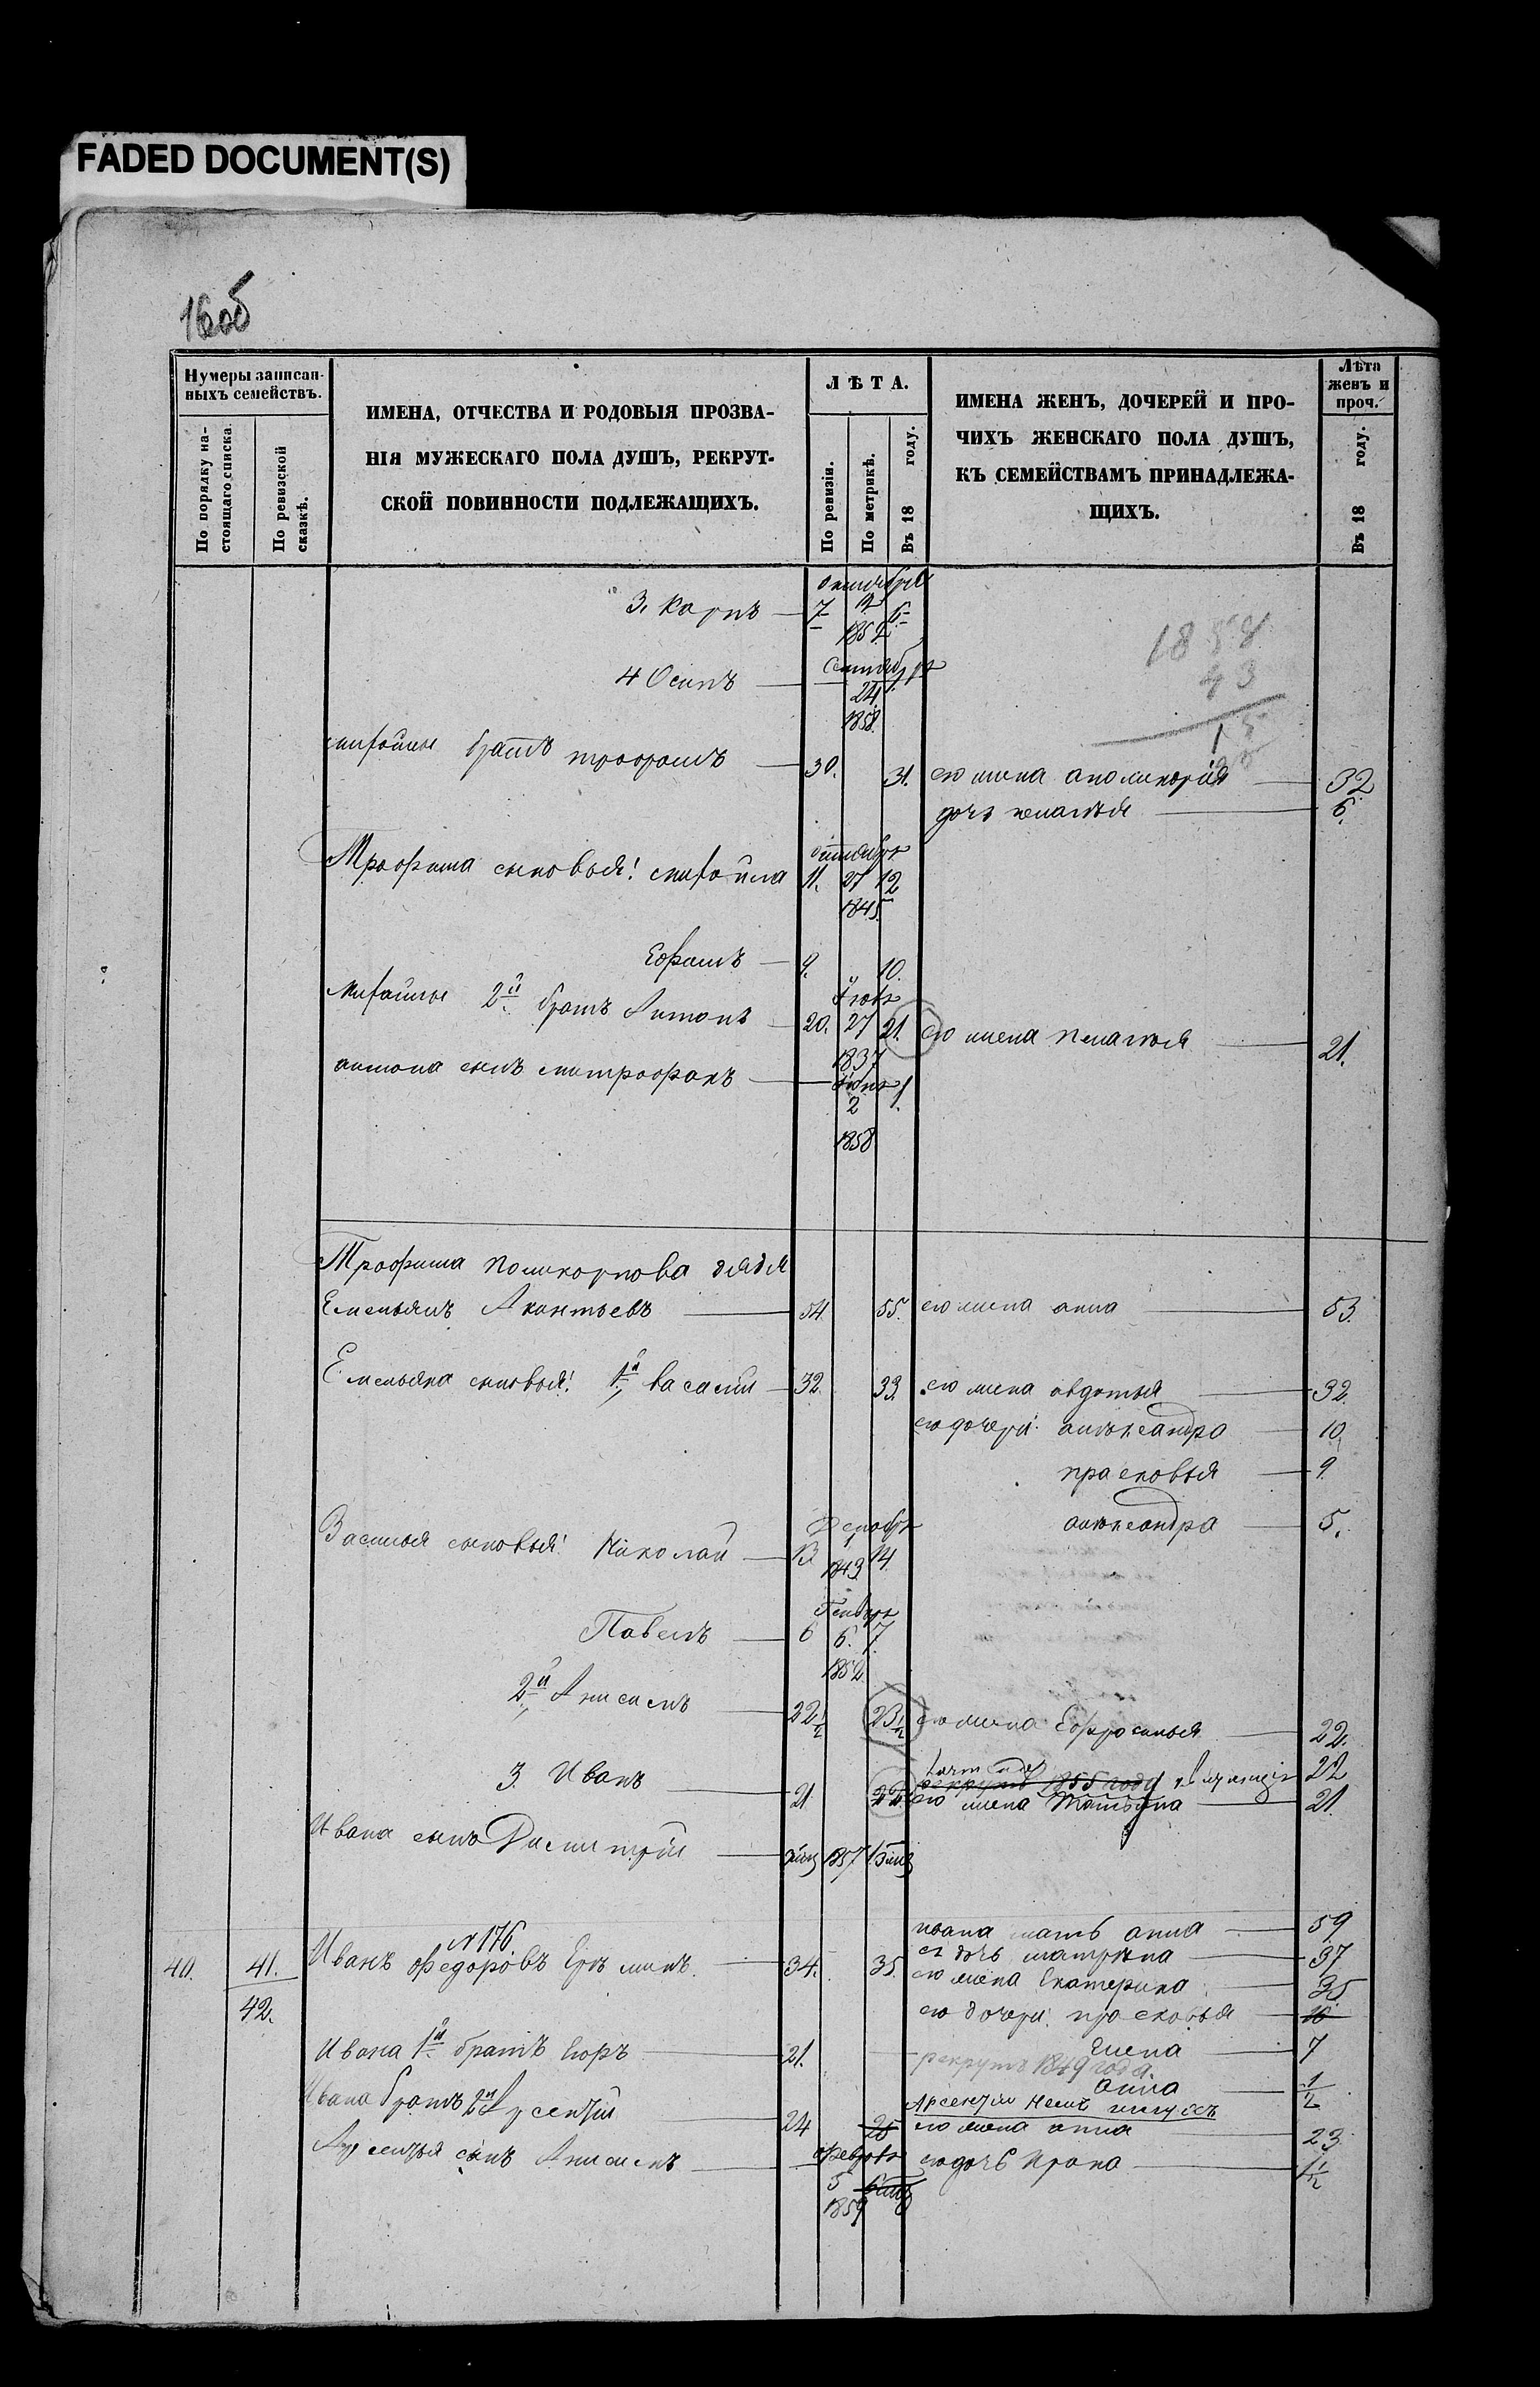 FADED DOCUMENT(S)
16об
Нумеры записан-
ныхъ семействъ.
По порядку на-
стоящаго списка.
По ревизской
сказкѣ.
ИМЕНА, ОТЧЕСТВА И РОДОВЫЯ ПРОЗВА-
НІЯ МУЖЕСКАГО ПОЛА ДУШЪ, РЕКРУТ-
СКОЙ ПОВИННОСТИ ПОДЛЕЖАЩИХЪ.
ЛѢТА.
По ревизіи.
По метрикѣ.
Въ 18 году.
ИМЕНА ЖЕНЪ, ДОЧЕРЕЙ И ПРО-
ЧИХЪ ЖЕНСКАГО ПОЛА ДУШЪ,
КЪ СЕМЕЙСТВАМЪ ПРИНАДЛЕЖА-
ЩИХЪ.
Лѣта
женъ и
проч.
Въ 18 году.
октября
3. Карпъ 7
1852
1858
43
15
4 Осипъ сентября
24
1858
братъ трофимъ 30. 31. его жена аполинарія 32
дочь пелагѣя 6.
октября
Трофима сыновья: михайла 11. 27 12
1845
Ефимъ 9. 10.
михайлы 2й братъ Антонъ 20. 27 21. его жена пелагея 21.
1837
антона сынъ митрофанъ 2 1.
1858
Трофима поликарпова дядя
Емельянъ Акантьевъ 54 55. его жена анна 53.
Емельяна сыновья: 1й василій 32. 33. его жена авдотья 32.
его дочери: александра 10.
прасковья 9
александра 5.
Василья сыновья: Николай 13. 1843 14. Декабря
Павелъ 6 6. 7.
1852
2й Анисимъ 22½ 23½ его жена Ефросинья 22.
3. Иванъ 21 22 1855 году 22
его жена Татьяна 21.
Ивана сынъ Дмитрій 1857
ивана мать анна 59
№ 176.
40. 41. Иванъ Федоровъ 34. 35. ея дочь матрена 37
42. его жена Екатерина 35
его дочери: прасковья 10
Ивана 1й братъ Егоръ 21. Елена 7
рекрутъ 1849 года
анна ½
Ивана братъ 2й Арсентій 24 25 его жена анна 23
Арсентья сынъ Анисимъ февраля его дочь Ирина 1½
5
1859